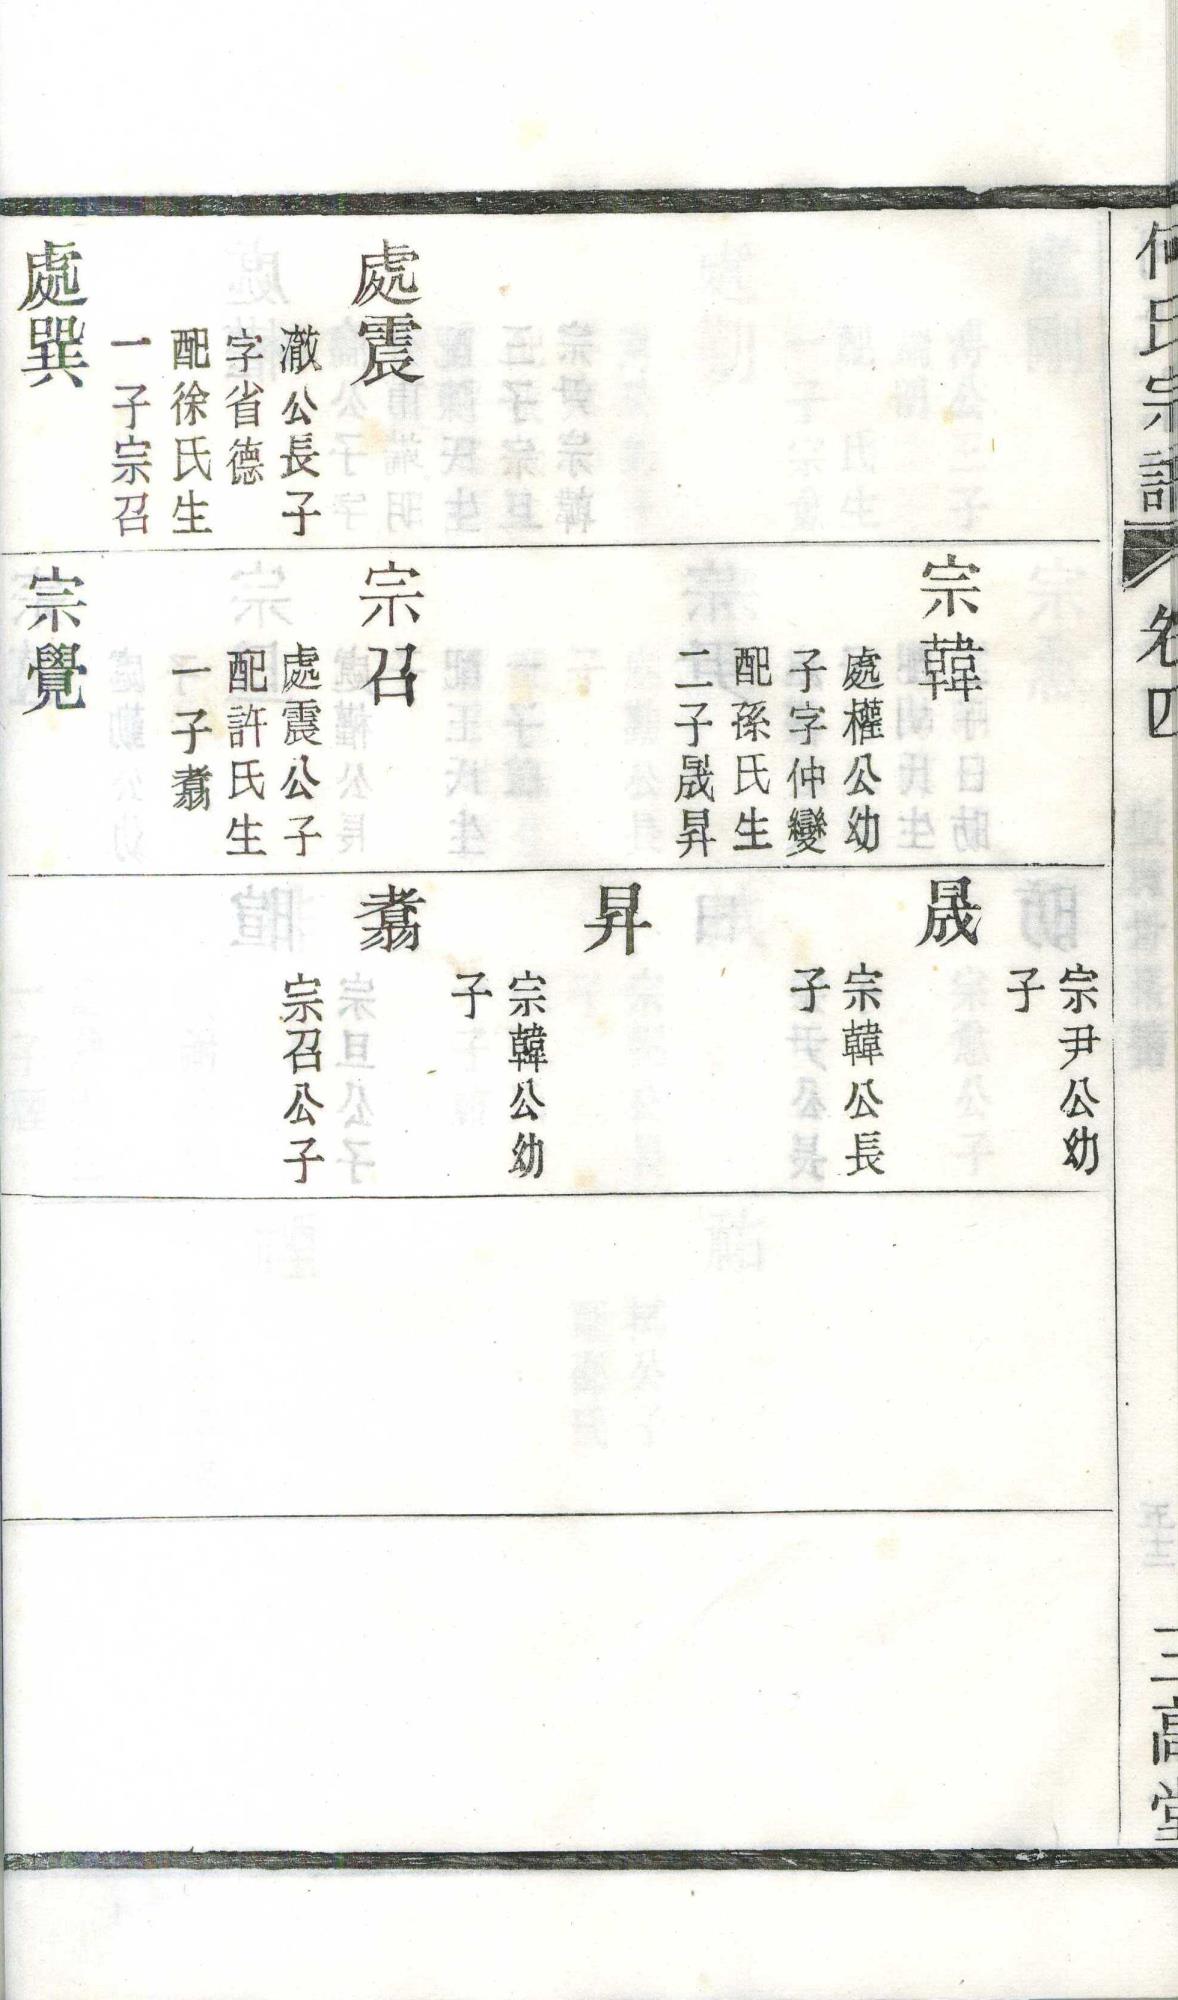 何氏宗譜
卷四
三高堂
處震
澈公長子
字省德
配徐氏生
一子宗召
處巽
宗韓
處權公幼
子字仲變
配孫氏生
二子晟昇
宗召
處震公子
配許氏生
一子翥
宗覺
宗尹公幼
子
晟
宗韓公長
子
昇
宗韓公幼
子
翥
宗召公子